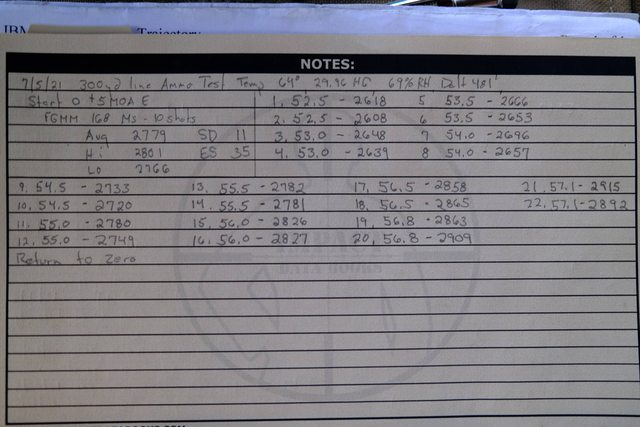 IBM Trajectory
NOTES:
7/5/21 300yd line Ammo Test Temp 64° 29.96 HG 69% RH DA 481'
Start 0 +5 MOA E 1, 52.5 - 2618 5 53.5 - 2666
FGMM 168 Ms - 10 shots 2. 52.5 - 2608 6 53.5 - 2653
Avg 2779 SD 11 3. 53.0 - 2648 7 54.0 - 2696
Hi 2801 ES 35 4. 53.0 - 2639 8 54.0 - 2657
Lo 2766
9, 54.5 - 2733 13. 55.5 - 2782 17, 56.5 - 2858 21. 57.1 - 2915
10, 54.5 - 2720 14. 55.5 - 2781 18. 56.5 - 2865 22, 57.1 - 2892
11. 55.0 - 2780 15. 56.0 - 2826 19. 56.8 - 2863
12. 55.0 - 2749 16. 56.0 - 2827 20, 56.8 - 2909
Return to Zero
DATA BOOKS